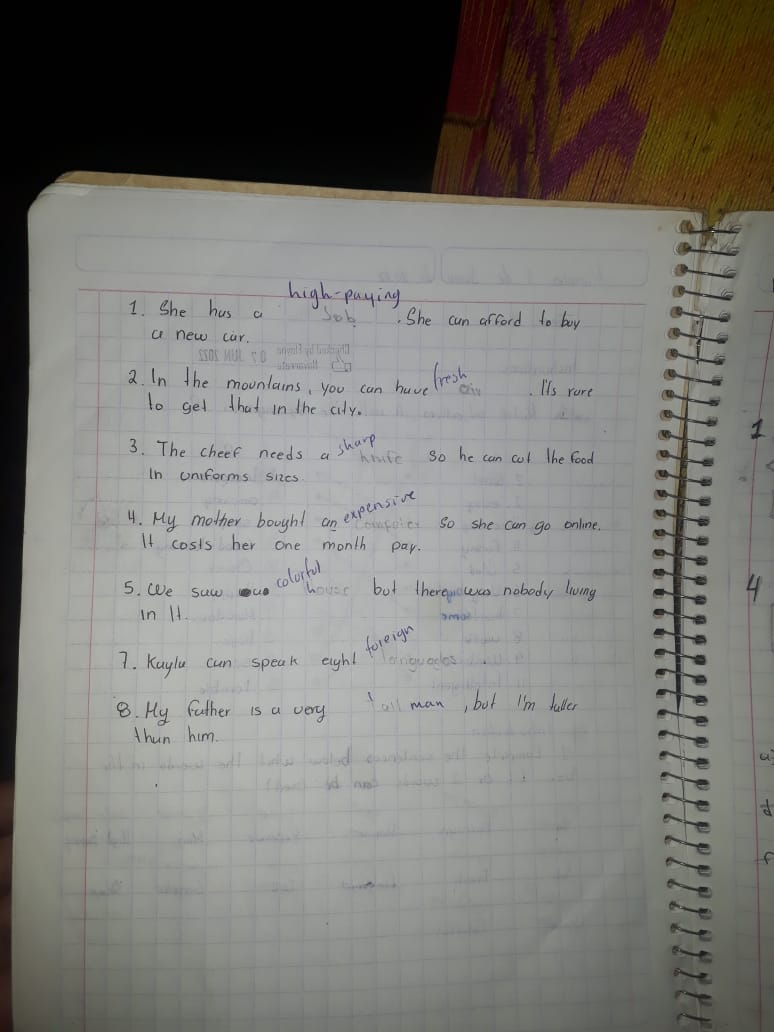 high-paying
1. She has a Job. She can afford to buy
a new car.
2. In the mountains, you can have fresh air. It's rare
to get that in the city.
3. The cheef needs a sharp knife so he can cut the food
In uniforms sizes.
4. My mother bought an expensive computer so she can go online.
It costs her one month pay.
5. We saw colorful house but there was nobody living
in It.
7. Kayla can speak eight foreign languages.
8. My father is a very tall man, but I'm taller
than him.
07 JUN 2022
1
4